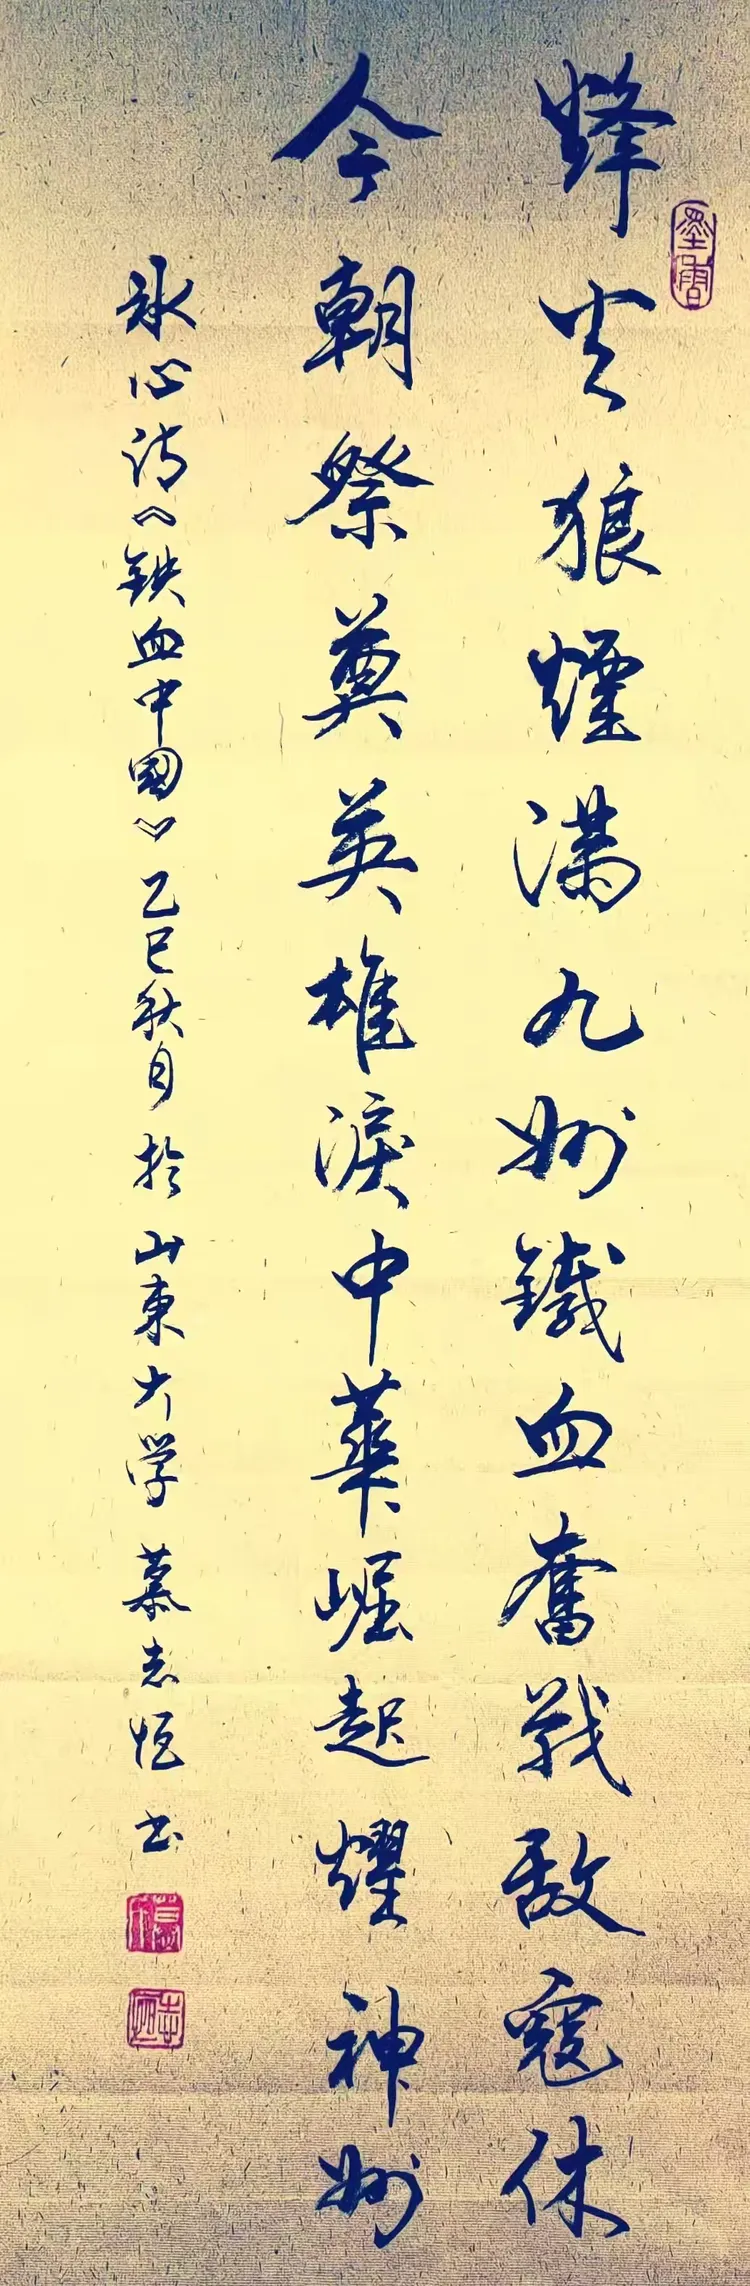 烽火狼煙满九州鐵血奮战敌寇休
今朝祭奠英雄淚中華崛起耀神州
冰心诗《铁血中国》乙巳秋月於山東大学慕志恒书
墨唐